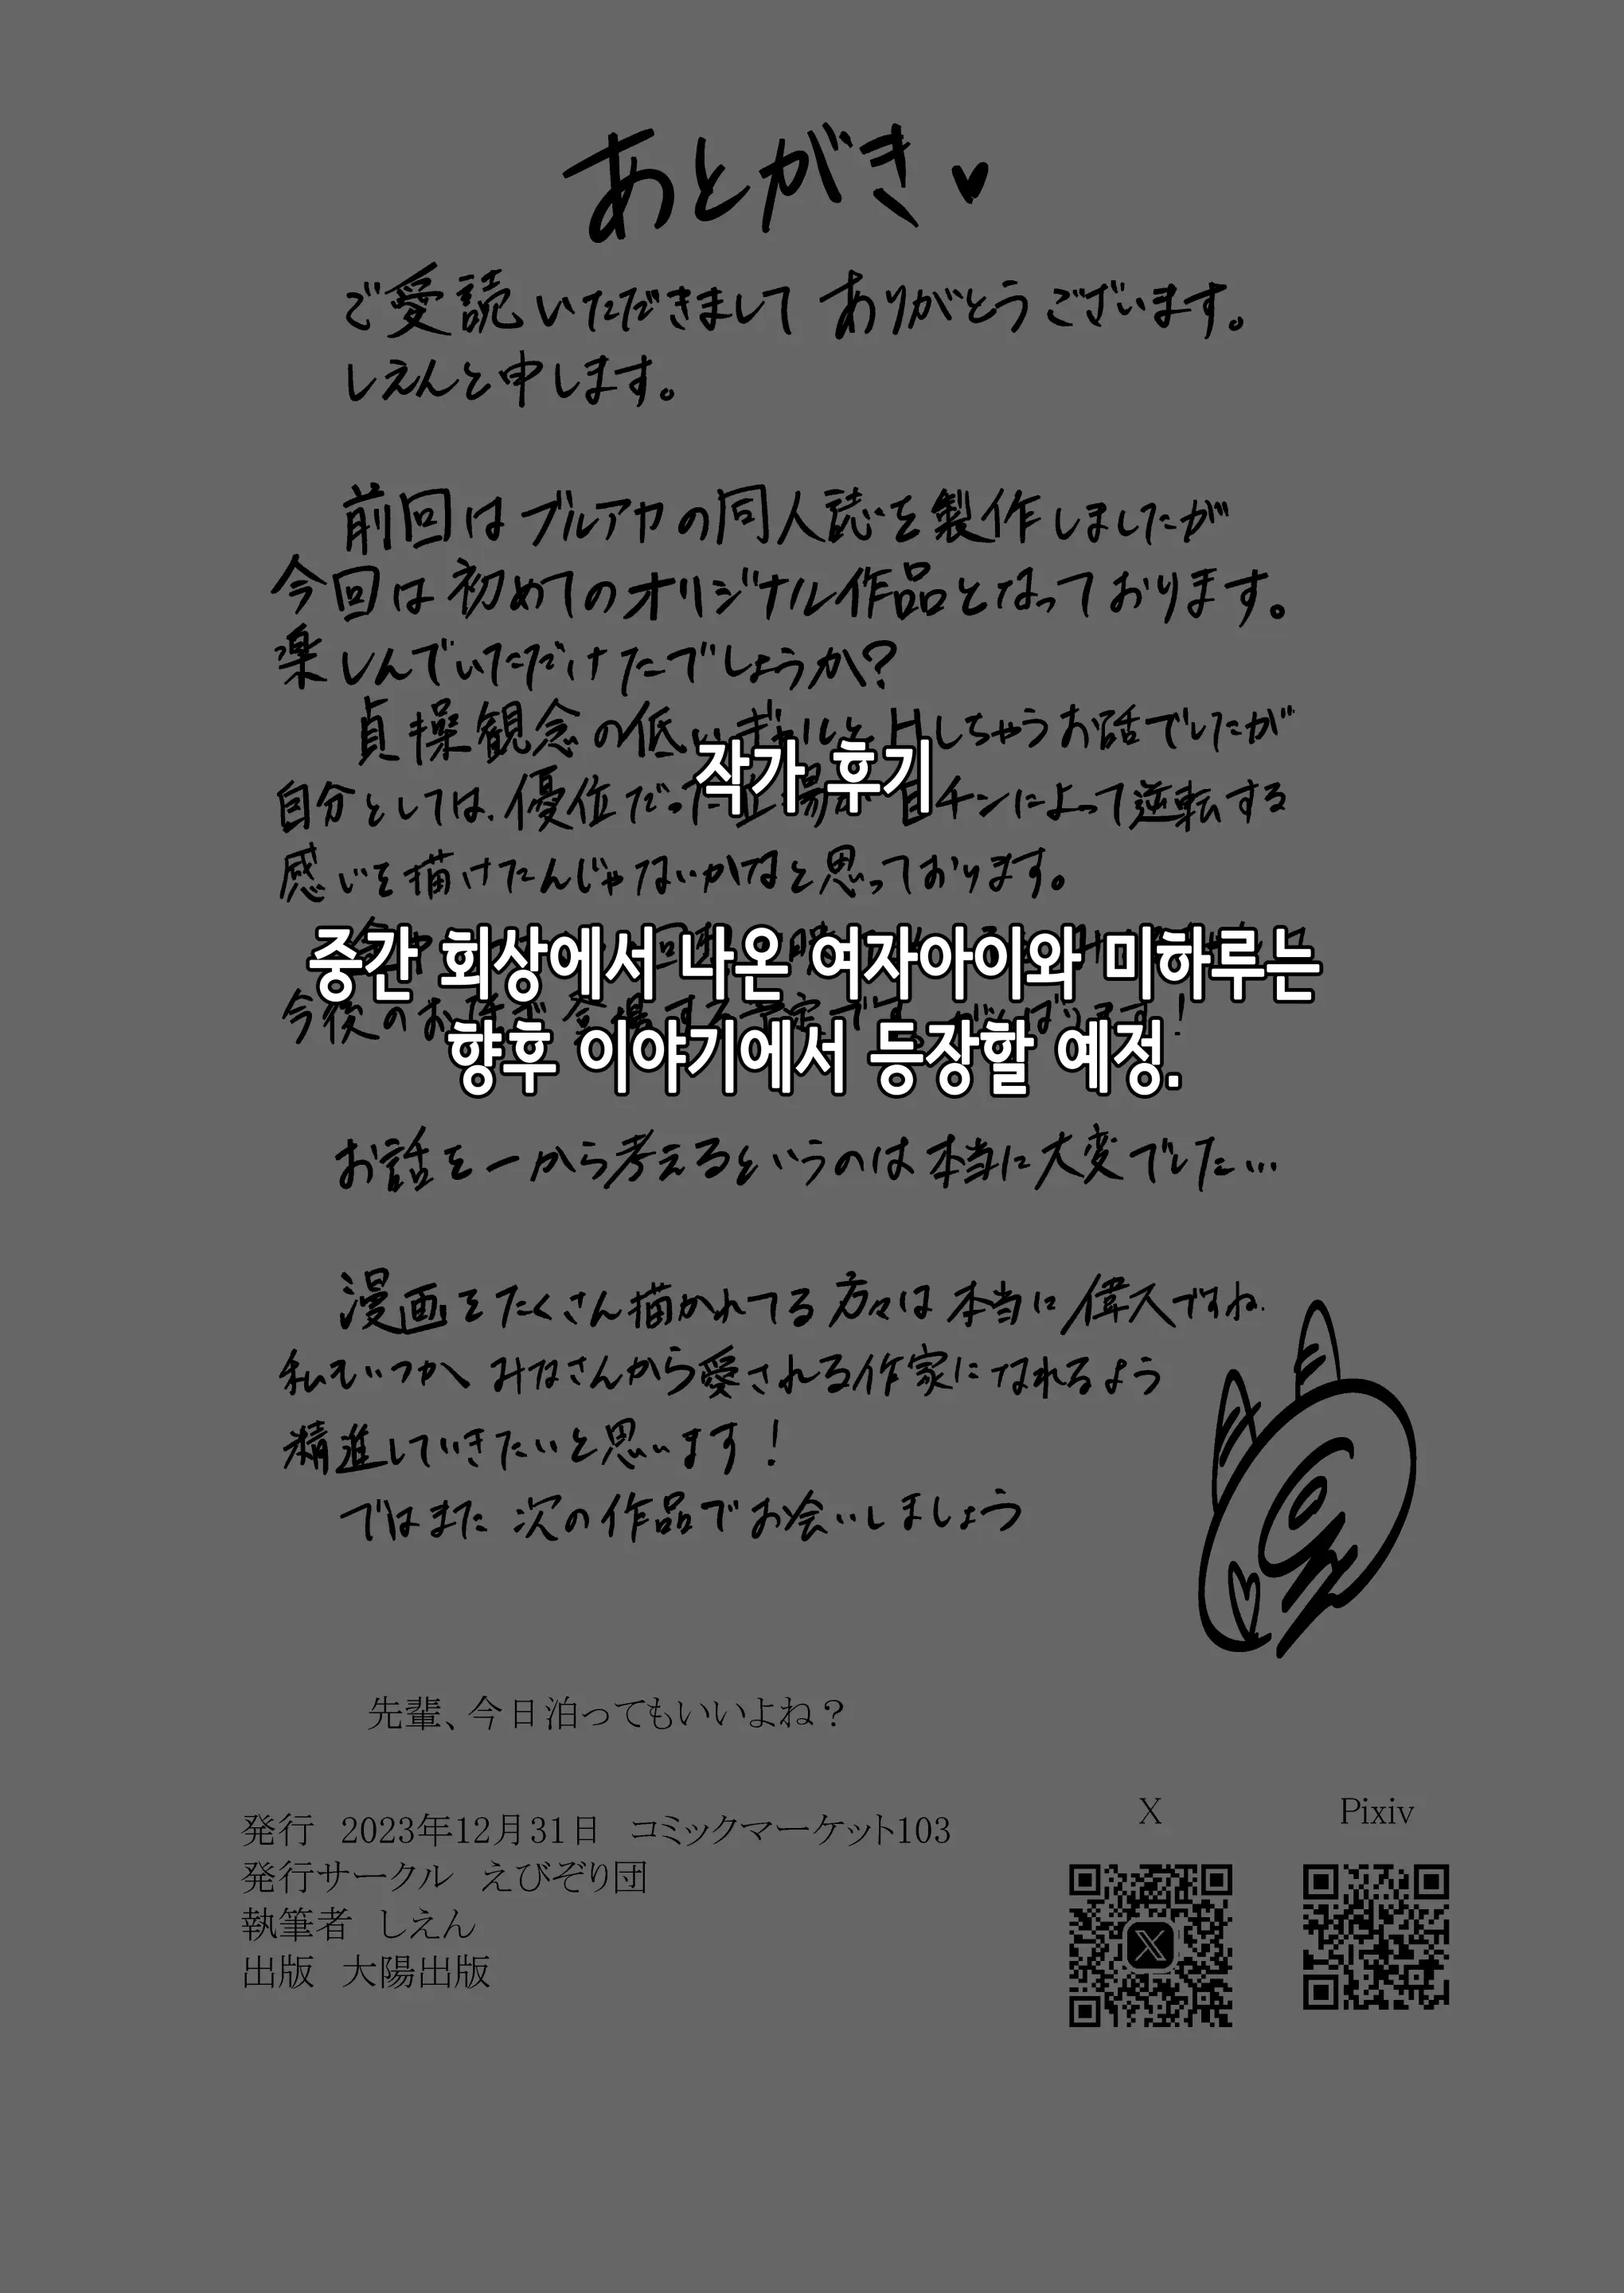 あとがき♥
ご愛読いただきまして ありがとうございます。
しえんと申します。
前回はブルアカの同人誌を製作しましたが
今回は初めてのオリジナル作品となっております。
楽しんでいただけたでしょうか?
貞操観念の低いギャルとHしちゃうお話でしたが
自分としては、優位だった
チンによって逆転する
感じを描けたんじゃないかなと思っております。
작가 후기
중간 회상에서 나온 여자아이와 미하루는
今後のお
향후 이야기에서 등장할 예정.
お話を一から考えるというのは本当に大変でした…
漫画をたくさん描かれてる方々は本当に偉人ですね、
私もいつか、みなさんから愛される作家になれるよう
精進していきたいと思います!
ではまた 次の作品でお会いしましょう
先輩、今日泊ってもいいよね？
発行 2023年12月31日 コミックマーケット103
発行サークル えびぞり団
執筆者 しえん
出版 大陽出版
X
Pixiv